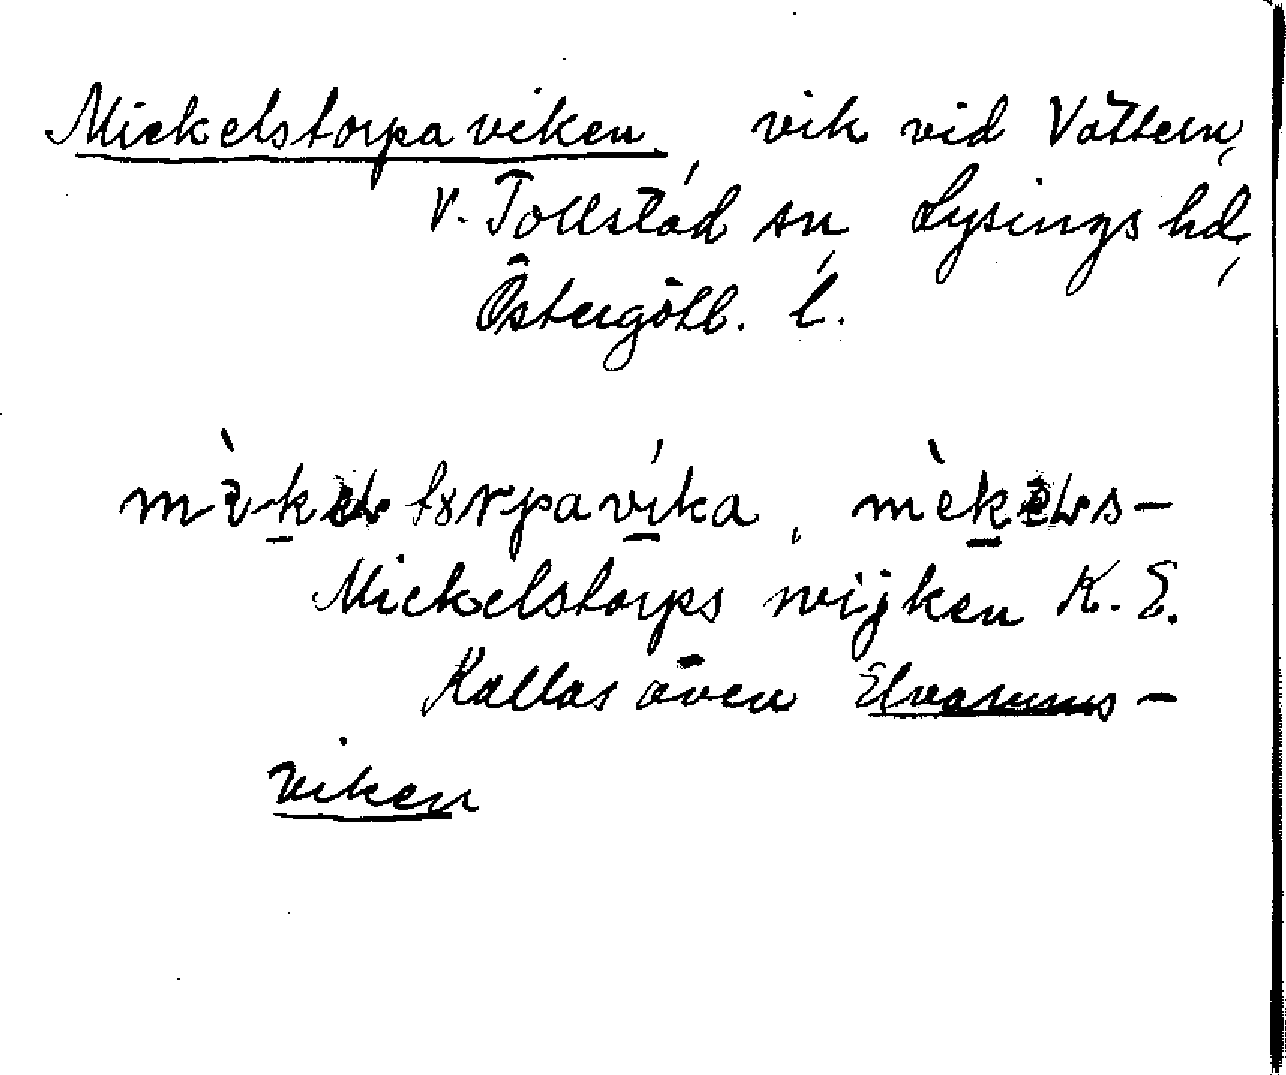 Mickelstorpaviken, vik vid Vättern,
V. Tollstad sn, Lysings hd,
Östergötl. l.
Mickelstorps wijken K. E.
Kallas även Elvarums-
viken